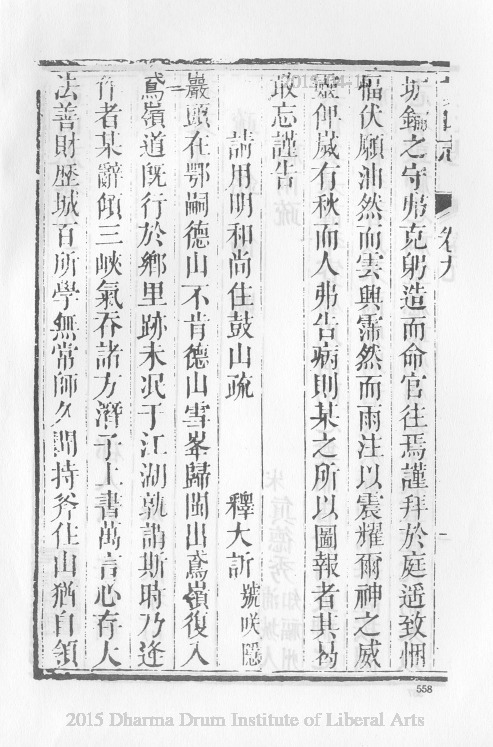 卷九
切錮之守弗克躬造而命官往焉謹拜於庭遥致悃
愊伏願油然而雲興霈然而雨注以震耀爾神之威
靈俾歲有秋而人弗告病則某之所以圖報者其曷
敢忘謹告
請用明和尚住鼓山疏 釋大訢 號咲隱
巖頭在鄂嗣德山不肯德山雪峯歸閩出鳶嶺復入
鳶嶺道旣行於鄉里跡未泯于江湖孰謂斯時乃逢
作者某辭傾三峽氣吞諸方濟子上書萬言心存大
法善財歷城百所學無常師久閒持斧住山猶自領
558
2015 Dharma Drum Institute of Liberal Arts